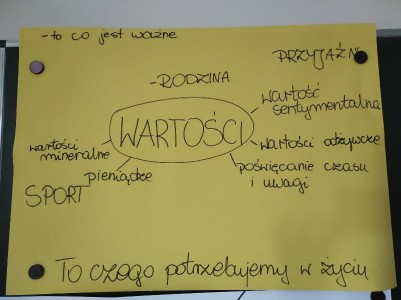 - to co jest ważne
PRZYJAŹŃ
- RODZINA
wartość
sentymentalna
WARTOŚCI
wartości
mineralne
wartości odżywcze
pieniądze
poświęcanie czasu
i uwagi
SPORT
To czego potrzebujemy w życiu